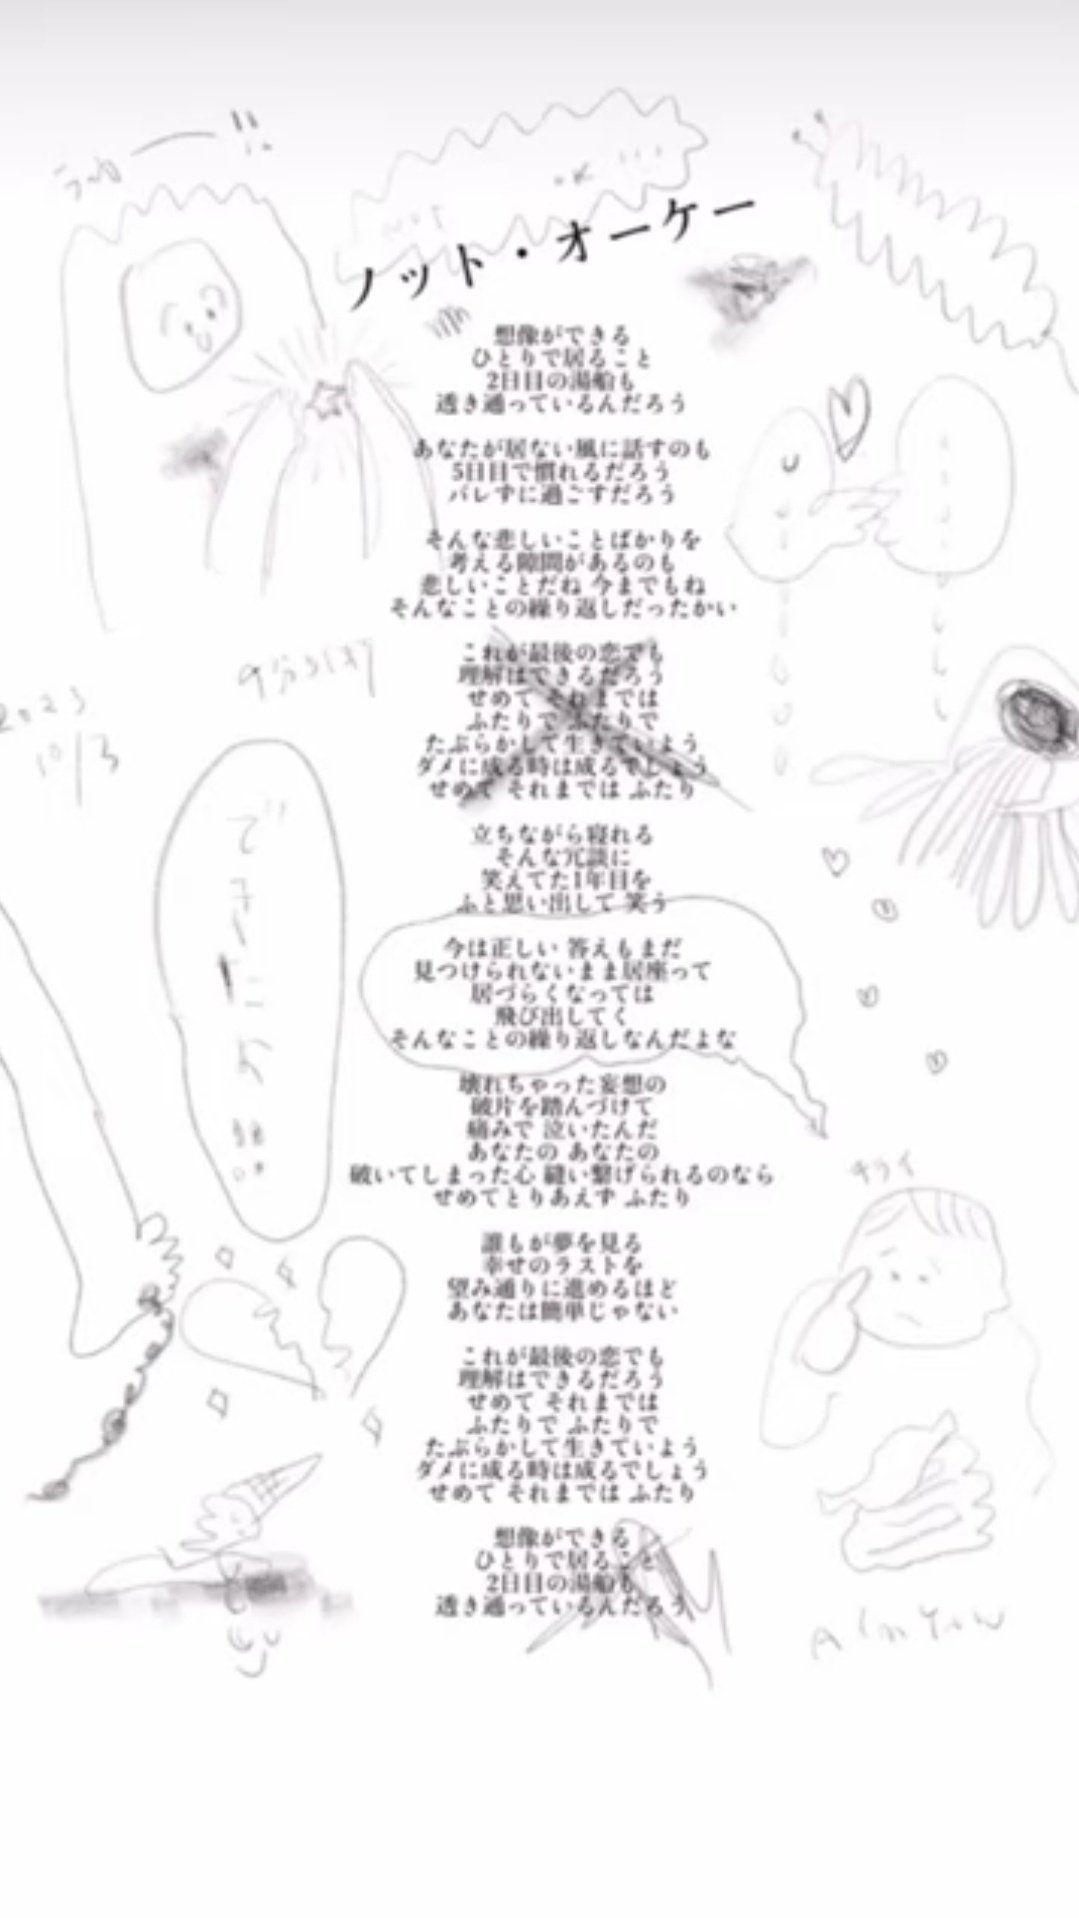 NOT
OK !!!
ノット・オーケー
想像ができる
ひとりで居ること
2日目の湯船も
透き通っているんだろう
あなたが居ない風に話すのも
5日目で慣れるだろう
バレずに過ごすだろう
そんな悲しいことばかりを
考える隙間があるのも
悲しいことだね 今までもね
そんなことの繰り返しだったかい
これが最後の恋でも
理解はできるだろう
せめて それまでは
ふたりで ふたりで
たぶらかして生きていよう
ダメに成る時は成るでしょう
せめて それまでは ふたり
2023
10/3
立ちながら寝れる
そんな冗談に
笑えてた1年目を
ふと思い出して 笑う
今は正しい 答えもまだ
見つけられないまま居座って
居づらくなっては
飛び出してく
そんなことの繰り返しなんだよな
壊れちゃった妄想の
破片を踏んづけて
痛みで 泣いたんだ
あなたの あなたの
破いてしまった心 縫い繋げられるのなら
せめてとりあえず ふたり
誰もが夢を見る
幸せのラストを
望み通りに進めるほど
あなたは簡単じゃない
これが最後の恋でも
理解はできるだろう
せめて それまでは
ふたりで ふたりで
たぶらかして生きていよう
ダメに成る時は成るでしょう
せめて それまでは ふたり
想像ができる
ひとりで居ること
2日目の湯船も
透き通っているんだろう